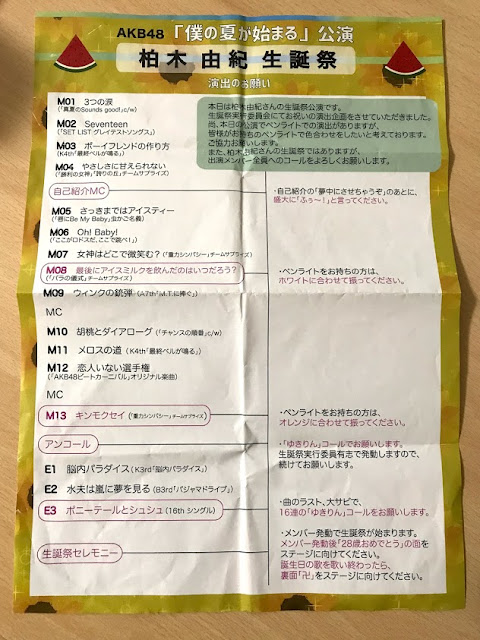 AKB48 「僕の夏が始まる」公演
柏木由紀生誕祭
演出のお願い
本日は柏木由紀さんの生誕祭公演です。
生誕祭実行委員会にてお祝いの演出企画をさせていただきました。
尚、本日の公演でペンライトでの演出がありますが、
皆様がお持ちのペンライトで色合わせをしたいと考えております。
ご協力お願いします。
また、柏木由紀さんの生誕祭ではありますが、
出演メンバー全員へのコールをよろしくお願いします。
M01 3つの涙
(「真夏のSounds good!」c/w)
M02 Seventeen
(「SET LIST グレイテストソングス」)
M03 ボーイフレンドの作り方
(K4th「最終ベルが鳴る」)
M04 やさしさに甘えられない
(「勝利の女神」「誇りの丘」チームサプライズ)
自己紹介MC
・自己紹介の「夢中にさせちゃうぞ」のあとに、
盛大に「ふぅ～!」と言ってください。
M05 さっきまではアイスティー
(「唇にBe My Baby」虫かご名義)
M06 Oh! Baby!
(「ここがロドスだ、ここで跳べ!」)
M07 女神はどこで微笑む? (「重力シンパシー」チームサプライズ)
M08 最後にアイスミルクを飲んだのはいつだろう?
(「バラの儀式」チームサプライズ)
・ペンライトをお持ちの方は、
ホワイトに合わせて振ってください。
M09 ウィンクの銃弾 (A7th「M.T.に捧ぐ」)
MC
M10 胡桃とダイアローグ (「チャンスの順番」c/w)
M11 メロスの道 (K4th「最終ベルが鳴る」)
M12 恋人いない選手権
(「AKB48ビートカーニバル」オリジナル楽曲)
MC
M13 キンモクセイ (「重力シンパシー」チームサプライズ)
・ペンライトをお持ちの方は、
オレンジに合わせて振ってください。
アンコール
・「ゆきりん」コールでお願いします。
生誕祭実行委員有志で発動しますので、
続けてお願いします。
E1 脳内パラダイス (K3rd「脳内パラダイス」)
E2 水夫は嵐に夢を見る (B3rd「パジャマドライブ」)
E3 ポニーテールとシュシュ (16th シングル)
・曲のラスト、大サビで、
16連の「ゆきりん」コールをお願いします。
生誕祭セレモニー
・メンバー発動で生誕祭が始まります。
メンバー発動後「28歳おめでとう」の面を
ステージに向けてください。
誕生日の歌を歌い終わったら、
裏面「卍」をステージに向けてください。